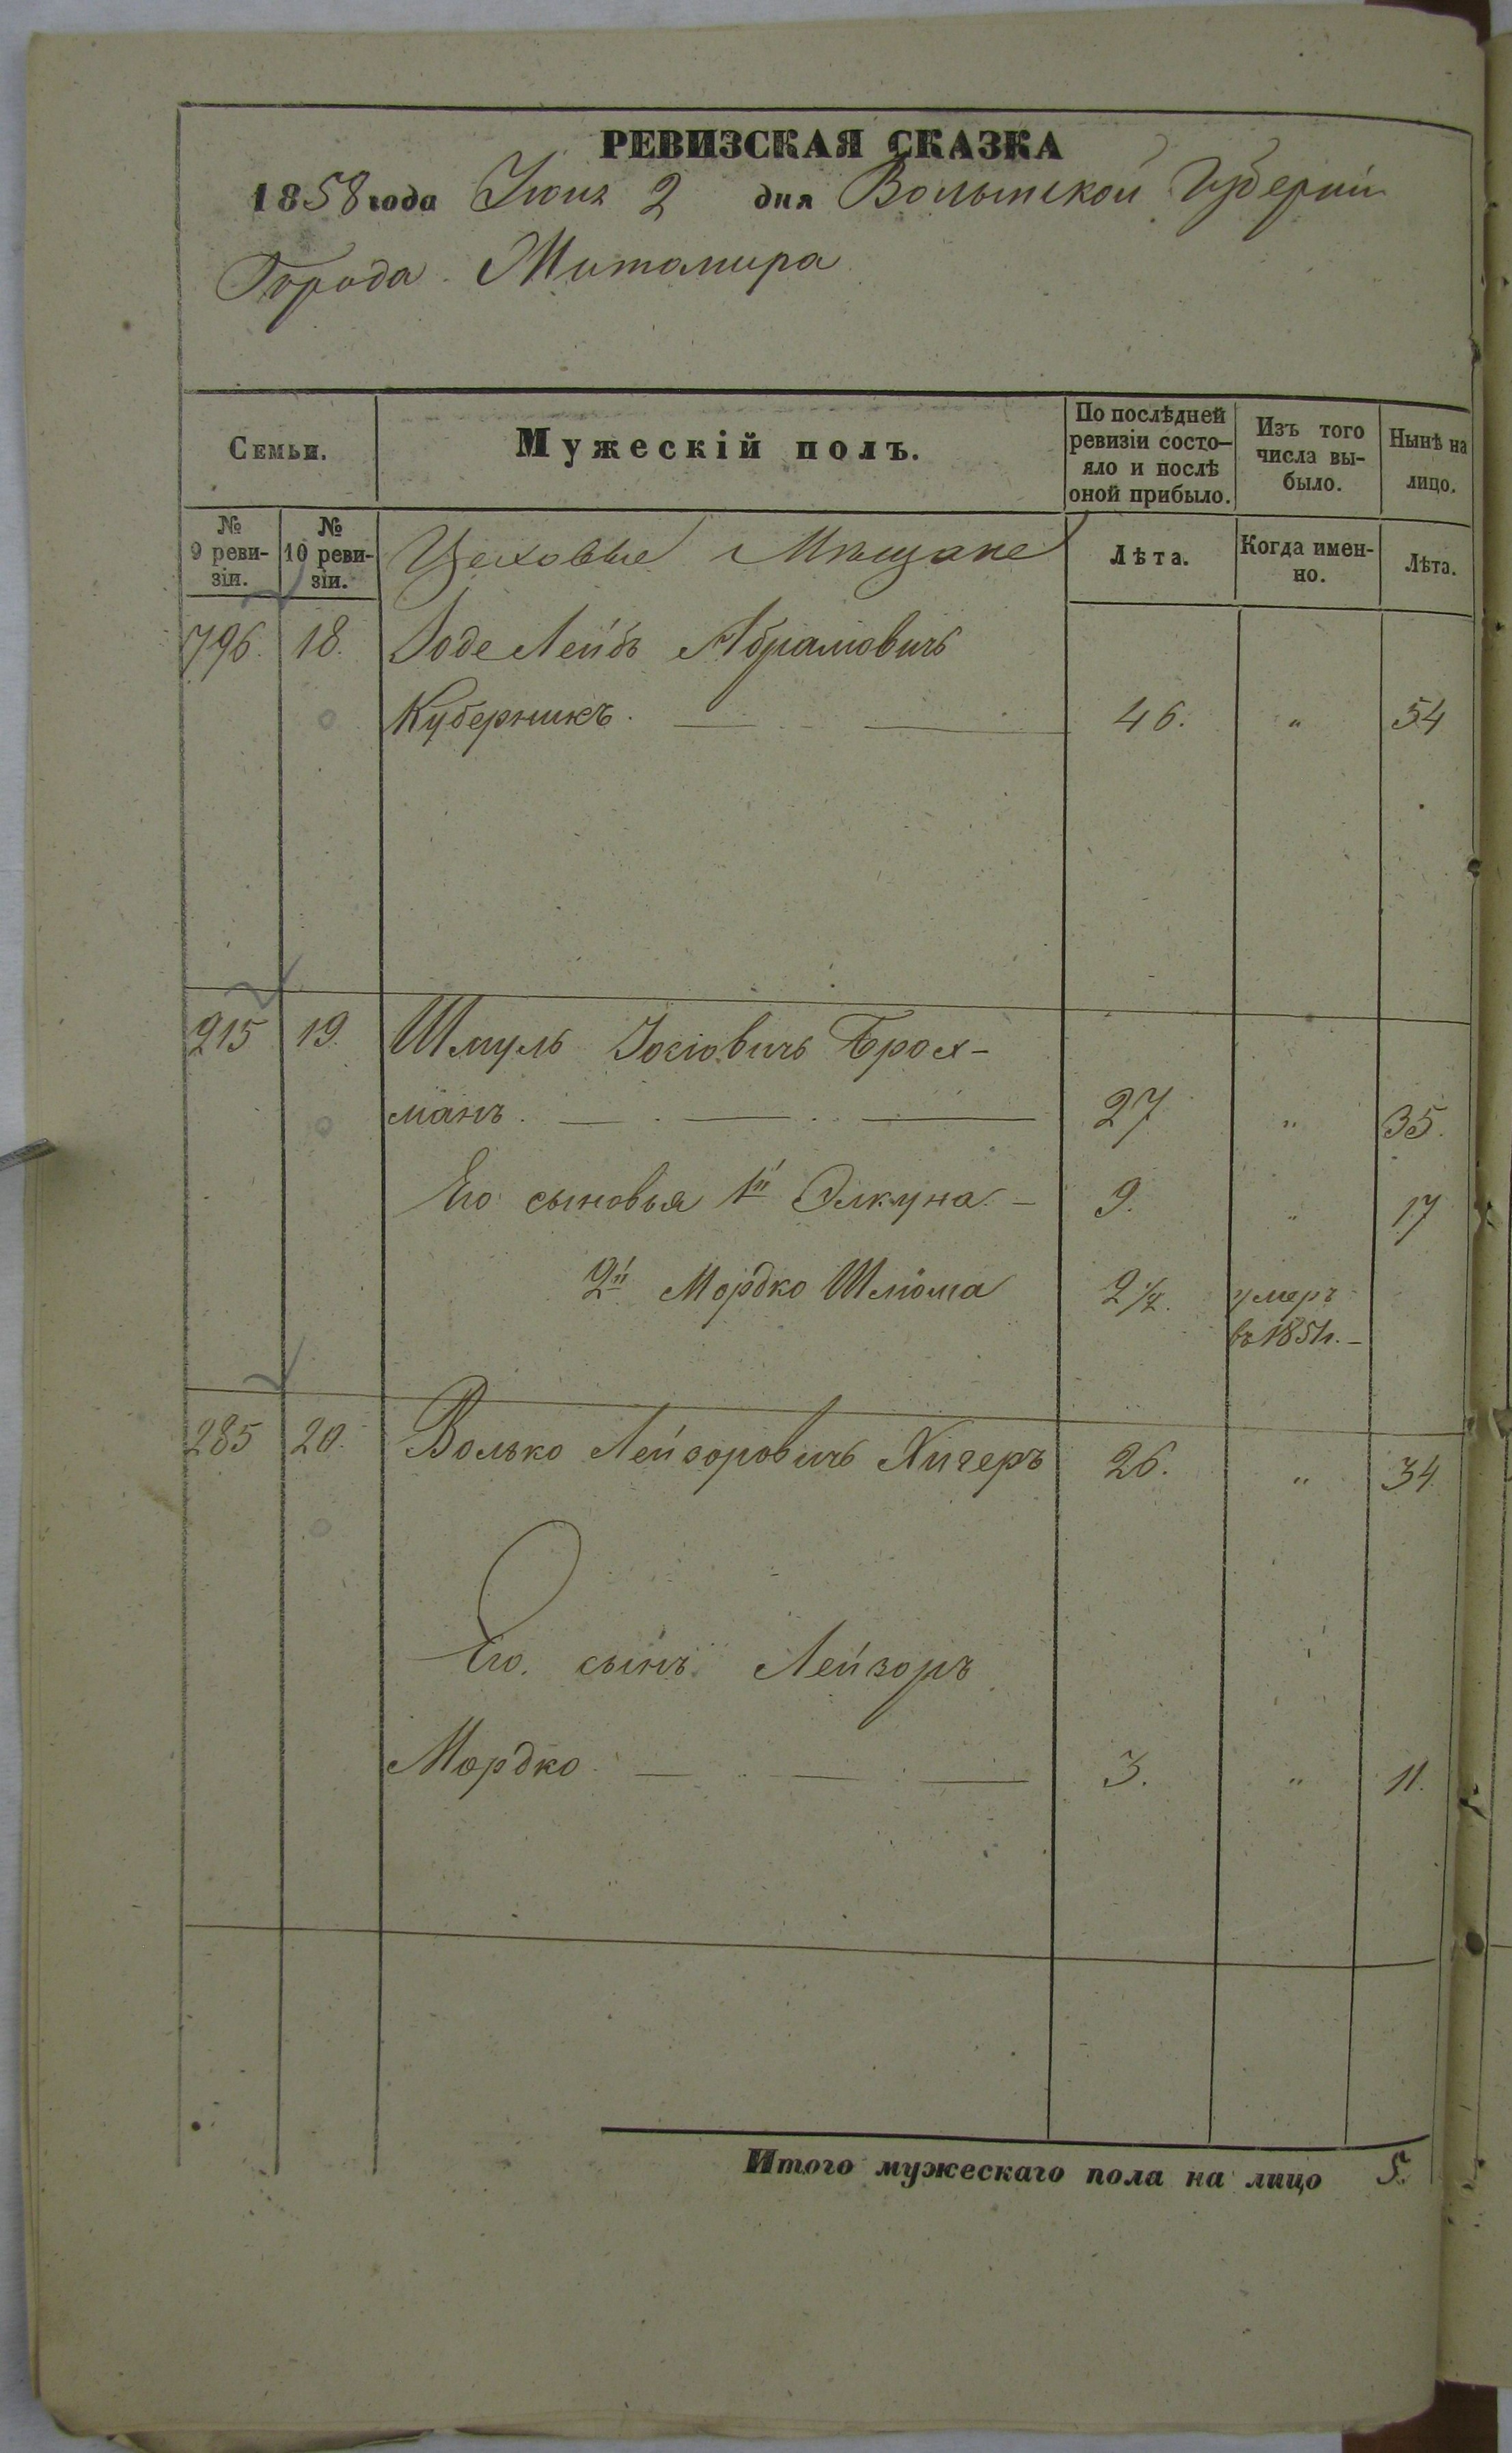 РЕВИЗСКАЯ СКАЗКА
1858 года Іюня 2 дня Волынской Губерніи
Города Житомира
Семьи.
Мужескій полъ.
По послѣдней ревизіи состо-
яло и послѣ
оной прибыло.
Изъ того
числа вы-
было.
Нынѣ на
лицо.
№
9 реви-
зіи.
№
10 реви-
зіи.
Цеховые Мѣщане
Лѣта.
Когда имен-
но.
Лѣта.
796. 18. Лейбъ Абрамовичъ
Куберникъ. 46. „ 54
215 19. Шмуль Іосіовичъ Брох-
манъ. 27 „ 35.
Его сыновья 1й Элкуна 9. „ 17
2й Мордко Шлома 2 1/2. умеръ
въ 1851г.
285 20. Волько Лейзоровичъ Хигеръ 26. „ 34
Его сынъ Лейзоръ
Мордко 3. „ 11.
Итого мужескаго пола на лицо 5.